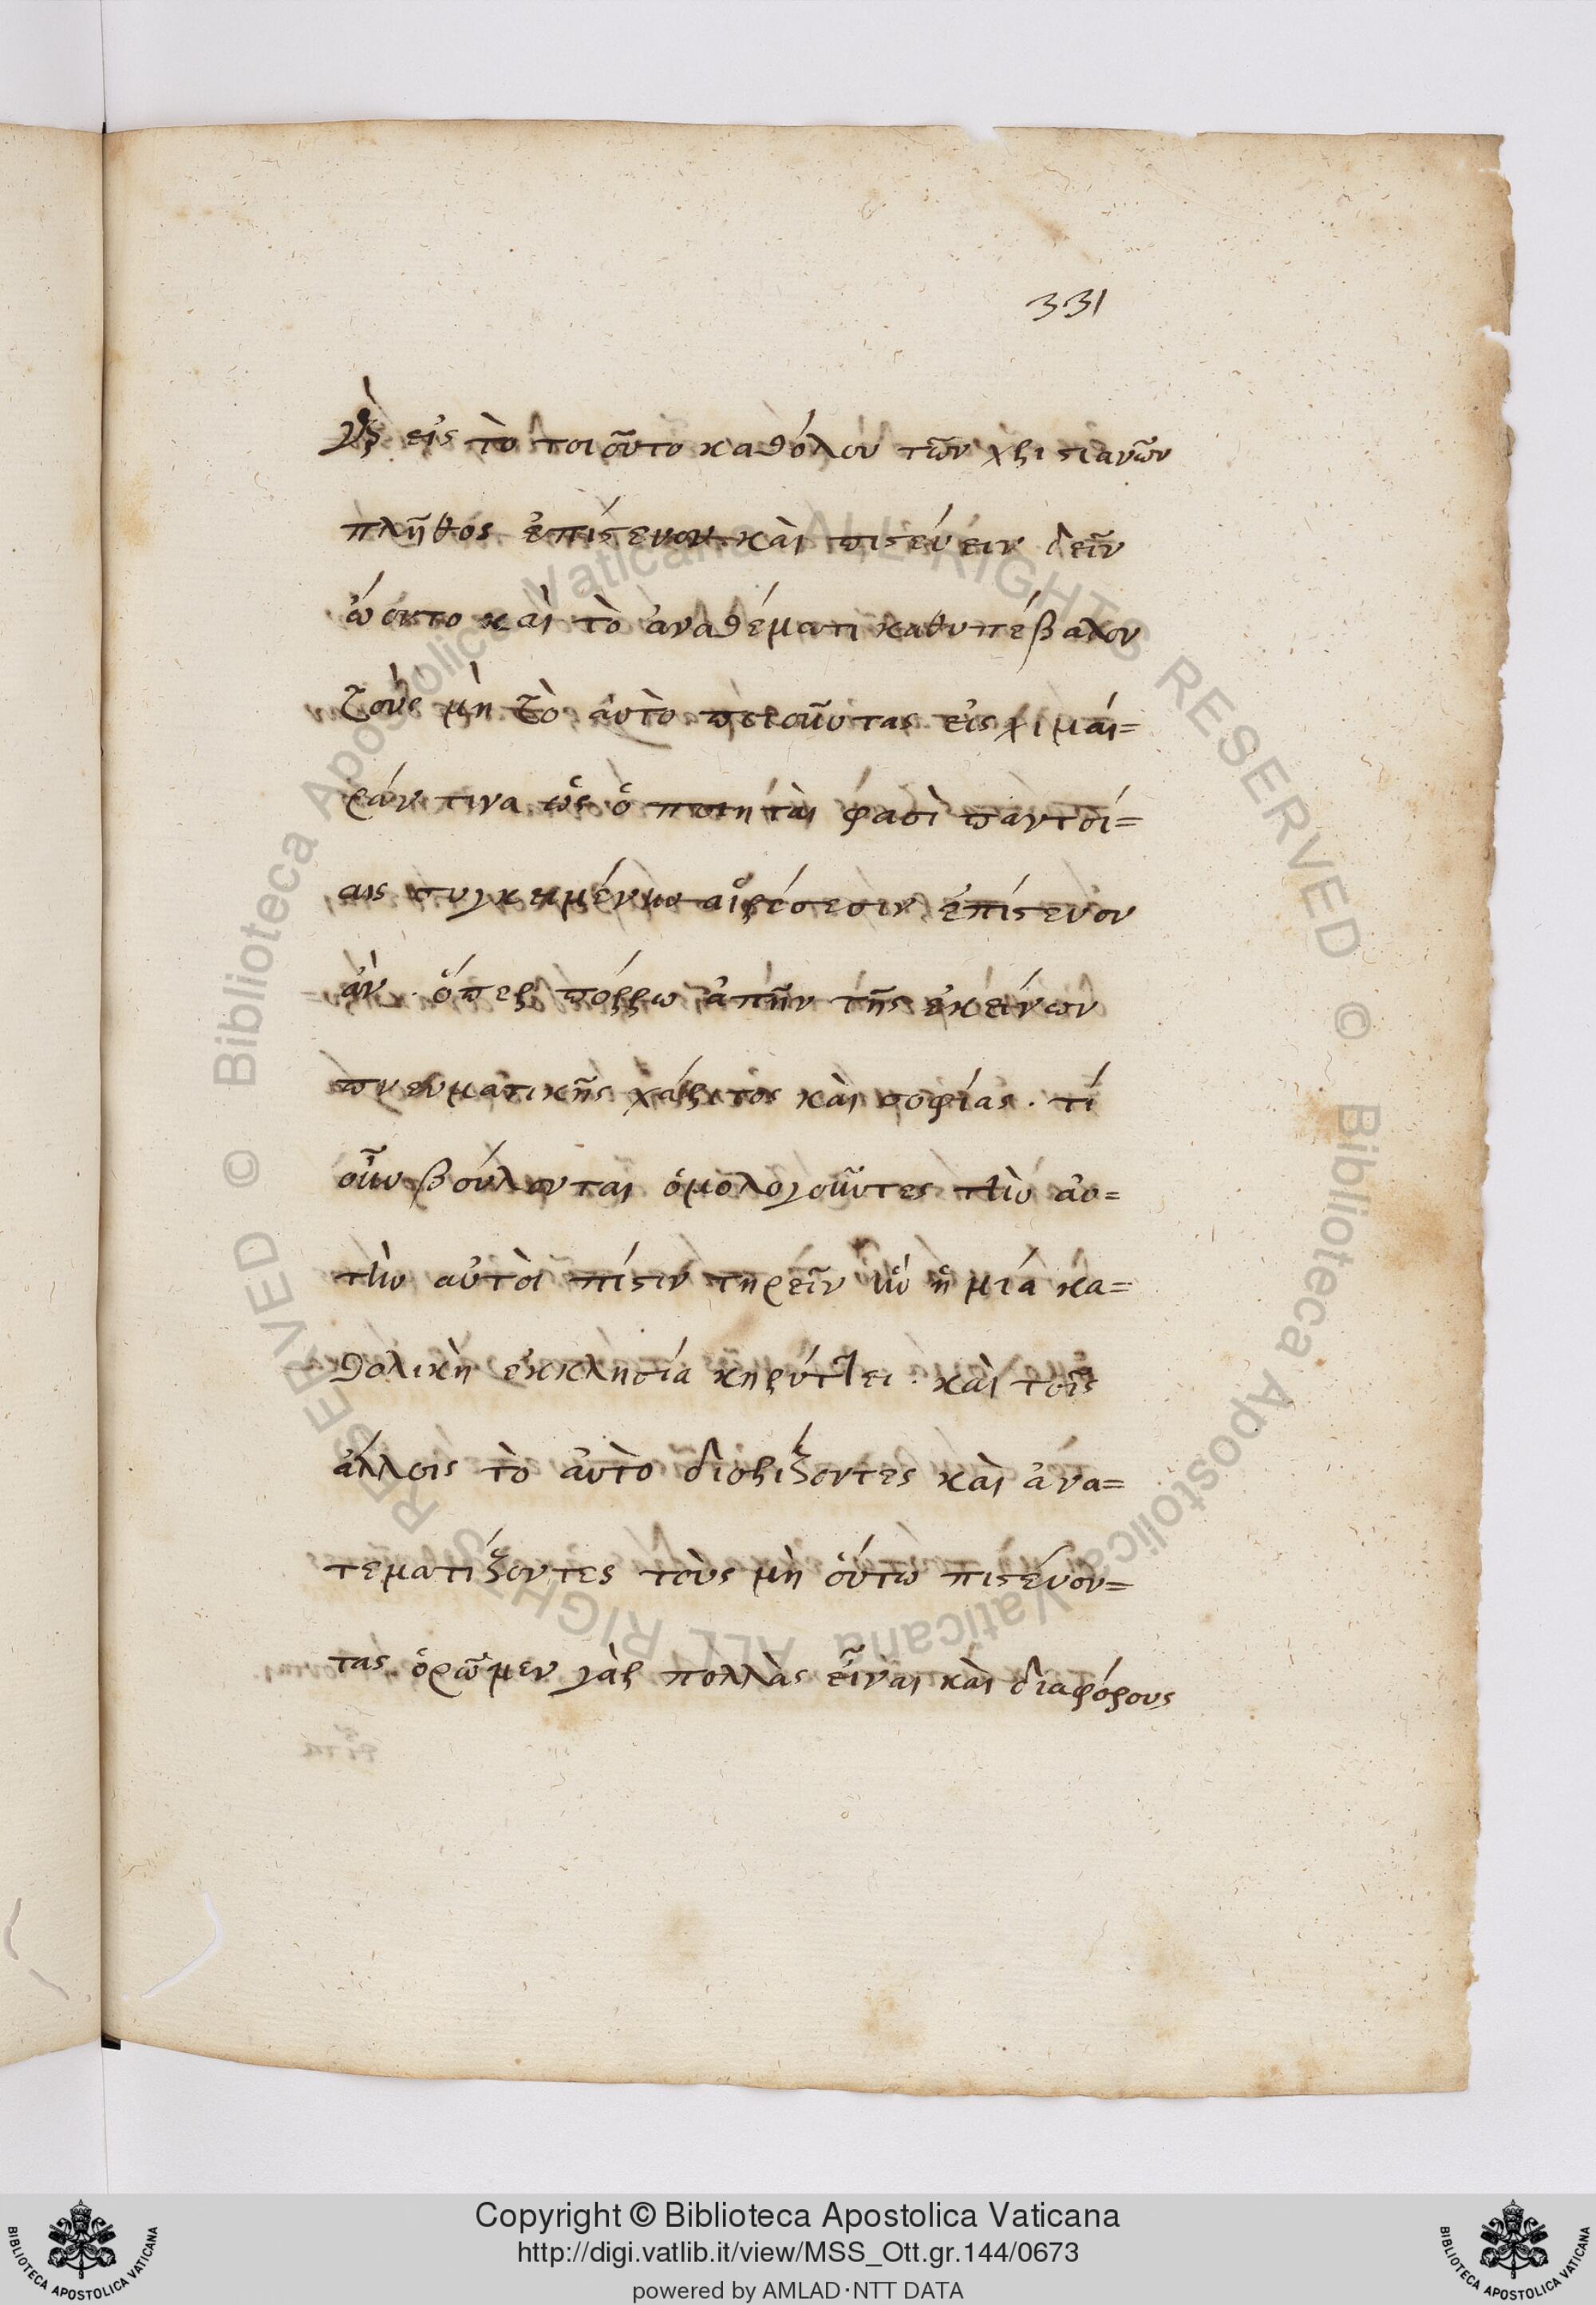 331
γὰρ εἰς τὸ τοιοῦτο καθόλου τῶν χριστιανῶν
πλῆθος ἐπίστευον καὶ πιστεύειν δεῖν
ᾤοντο καὶ τὸ ἀναθέματι καθυπέβαλον
τοὺς μὴ τὸ αὐτὸ ποιοῦντας εἰς χιμαί=
ραν τινα ὡς ὁ ποιηταὶ φασὶ παντοί=
αις συγκειμένην αἱρέσεσιν ἐπίστευον
ἂν. ὅπερ πόρρω ἀπῆν τῆς ἐκείνων
πνευματικῆς χάριτος καὶ σοφίας. τί
οὖν βούλονται ὁμολογοῦντες τὴν αὐ=
τὴν αὐτοὶ πίστιν τηρεῖν ἣν ἡ μία κα=
θολικὴ ἐκκλησία κηρύττει. καὶ τοῖς
ἄλλοις τὸ αὐτὸ διορίζοντες καὶ ἀνα=
τεματίζοντες τοὺς μὴ οὕτω πιστεύον=
τας. ὁρῶμεν γὰρ πολλὰς εἶναι καὶ διαφόρους
Biblioteca Apostolica Vaticana ALL RIGHTS RESERVED © Biblioteca Apostolica Vaticana ALL RIGHTS RESERVED ©
Copyright © Biblioteca Apostolica Vaticana
http://digi.vatlib.it/view/MSS_Ott.gr.144/0673
powered by AMLAD·NTT DATA
BIBLIOTECA APOSTOLICA VATICANA
BIBLIOTECA APOSTOLICA VATICANA